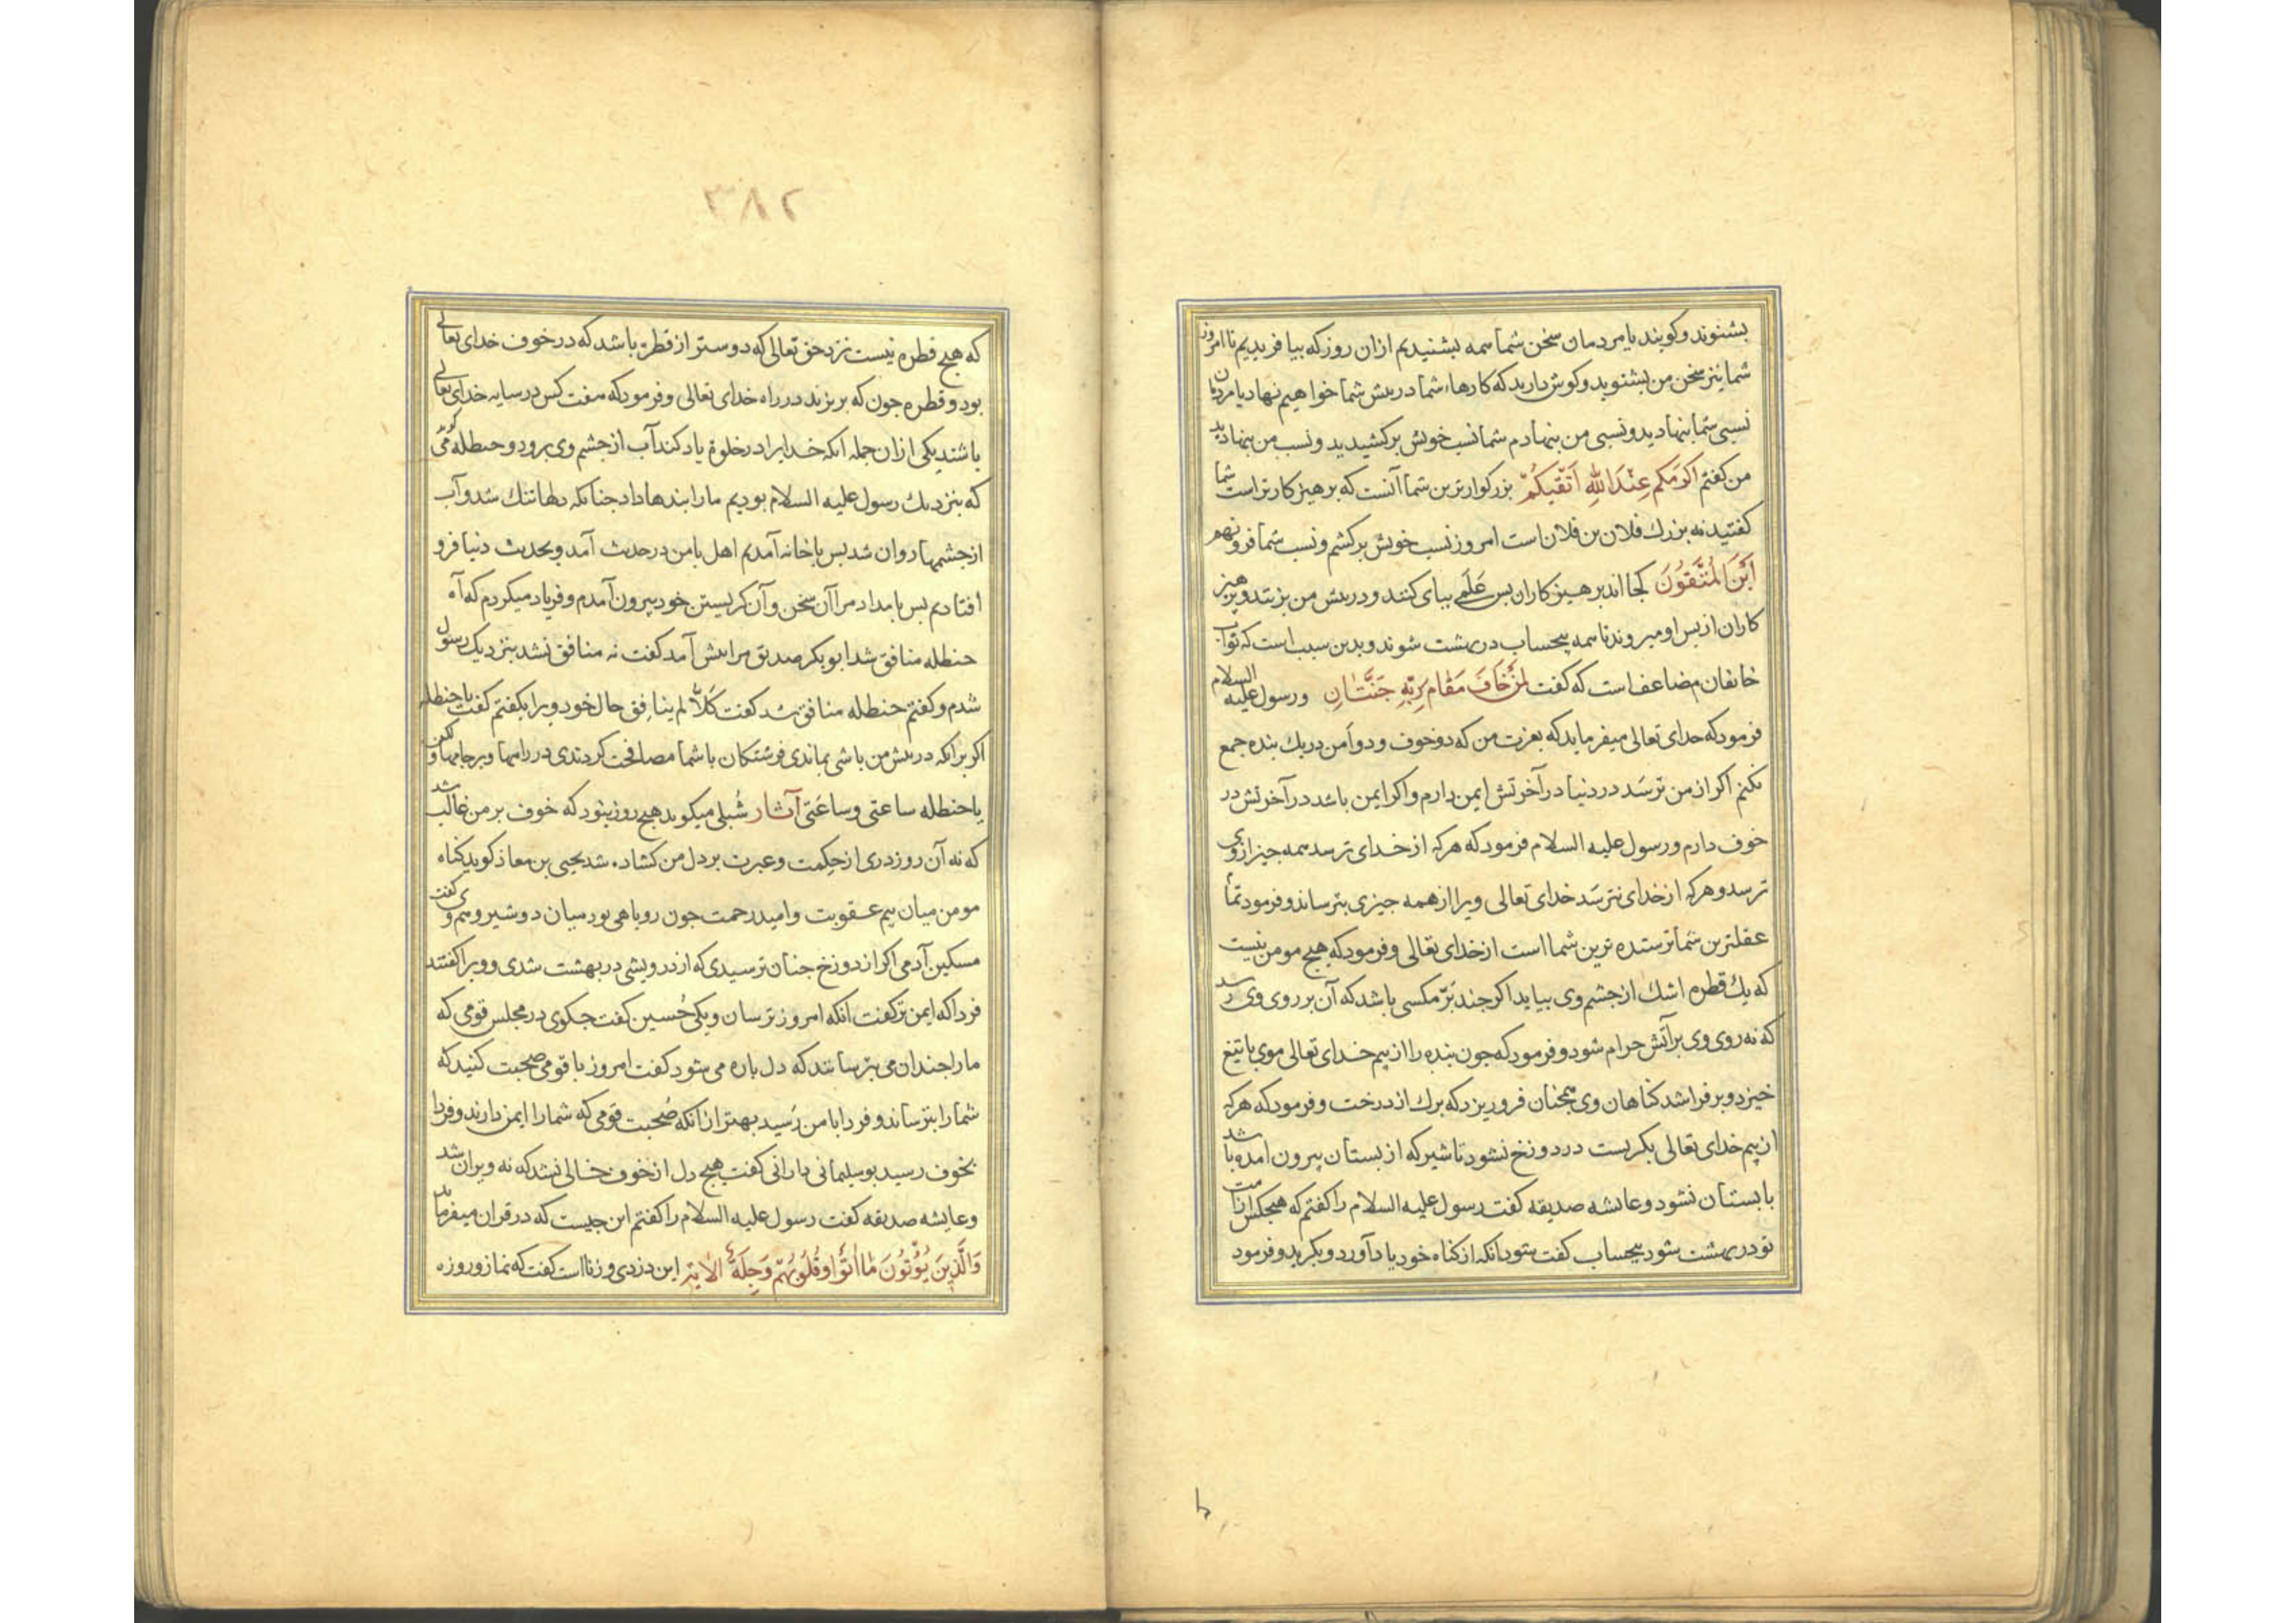 بشنوند وکویند یا مردمان سخن شما همه بشنیدیم ازان روز که بیافریدیم تا امروز
شما نیز سخن من بشنوید وکوش دارید که کارهاء شما در پیش شما خواهیم نهاد یا مردمان
نسبی شما بنهادید ونسبی من بنهادم شما نسب خویش برکشیدید ونسب من بنهادید
من کفتم اَکرَمَکم عِنْدَاللهِ اَتقٰیکُمْ بزرکوارترین شما آنست که برهیزکارتر است شما
کفتید نه بزرك فلان بن فلان است امروز نسب خویش برکشم ونسب شما فرو نهم
اَیْنَ المُتَّقُونَ کجا اند برهیزکاران بس عَلَمی ببای کنند ودر پیش من بزنند وپرهیز
کاران از بس او میروند تا همه بیحساب در بهشت شوند وبدین سبب است که ثواب
خائفان مضاعف است که کفت لِمَنْ خَافَ مَقَام رَبِّهِ جَنَّتَانِ ورسول علیه السلام
فرمود که خدای تعالی میفرماید که بعزت من که دو خوف ودو اَمن در یك بنده جمع
نکنم اکر از من ترسَد در دنیا در آخرتش ایمن دارم واکر ایمن باشد در آخرتش در
خوف دارم ورسول علیه السلام فرمود که هرکه از خدای ترسد همه جیز از وی
ترسد وهرکه از خدای نترسَد خدای تعالی ویرا از همه جیزی بترساند وفرمود تمام
عقلترین شما ترسنده ترین شما است از خدای تعالی وفرمود که هیج مومن نیست
که یك قطره اشك از جشم وی بیاید اکر جند بَرّ مکسی باشد که آن بر روی وی رسد
که نه روی وی بر آتش حرام شود وفرمود که جون بنده را از بیم خدای تعالی موی با تیغ
خیزد وبر فراشد کناهان وی همجنان فرو ریزد که برك از درخت وفرمود که هرکه
از بیم خدای تعالی بکریست در دوزخ نشود تا شیر که از بستان بیرون امده باشد
با بستان نشود وعائشه صدیقه کفت رسول علیه السلام را کفتم که هیجکس از امت
تو در بهشت شود بیحساب کفت شود انکه از کناه خود یاد آورد وبکرید وفرمود
٣٨٢
که هیج قطره نیست نزد حق تعالی که دوستر از قطره باشد که در خوف خدای تعالی
بود وقطره جون که بریزند در راه خدای تعالی وفرمود که هفت کس در سایه خدای تعالی
باشند یکی ازان جمله انکه خدایرا در خلوة یاد کند آب از جشم وی برود وحنظله کوید
که بنزدیك رسول علیه السلام بودیم ما را پندها داد جنانکه دلها تنك شد وآب
از جشمها روان شد بس با خانه آمدیم اهل با من در حدیث آمد وبحدیث دنیا فرو
افتادیم بس با یاد امد مرا آن سخن وآن کریستن خود بیرون آمدم وفریاد میکردم که آه
حنظله منافق شد ابوبکر صدیق مرا پیش آمد کفت نه منافق نشد بنزدیک رسول
شدم وکفتم حنظله منافق شد کفت کَلاّ لم ینافِق حال خود ویرا بکفتم کفت یا حنظله
اکر برانکه در پیش من باشی بماندی فرشتکان با شما مصافحت کردندی در راهها وبر جامها ولکن
یا حنظله ساعتی وساعَتی آثار شُبلی میکوید هیج روز نبود که خوف بر من غالب شد
که نه آن روز دری از حِکمت وعبرت بر دل من کشاده شد یحیی بن معاذ کوید کناه
مومن میان بیم عقوبت وامید رحمت جون روباهی بود میان دو شیر وهم وی کفت
مسکین آدمی اکر از دوزخ جنان ترسیدی که از درویشی در بهشت شدی وویرا کفتند
فردا که ایمن تر کفت آنکه امروز ترسان ویکی حُسین کفت جکوی در مجلس قومی که
ما را جندان می بترسانند که دل باره می شود کفت امروز با قومی صحبت کنید که
شما را بترساند وفردا بامن رَسید بهتر ازانکه صُحبت قومی که شما را ایمن دارند وفردا
بخوف رسید بوسلیمانی دارانی کفت هیج دل از خوف خالی نشد که نه ویران شد
وعایشه صدیقه کفت رسول علیه السلام را کفتم این جیست که در قران میفرماید
وَالَّذِینَ یُؤتُونَ مٰا اٰتَوْا وَقُلُوبُهُمْ وَجِلَةٌ الایة این دزدی وزنا است کفت که نماز وروزه